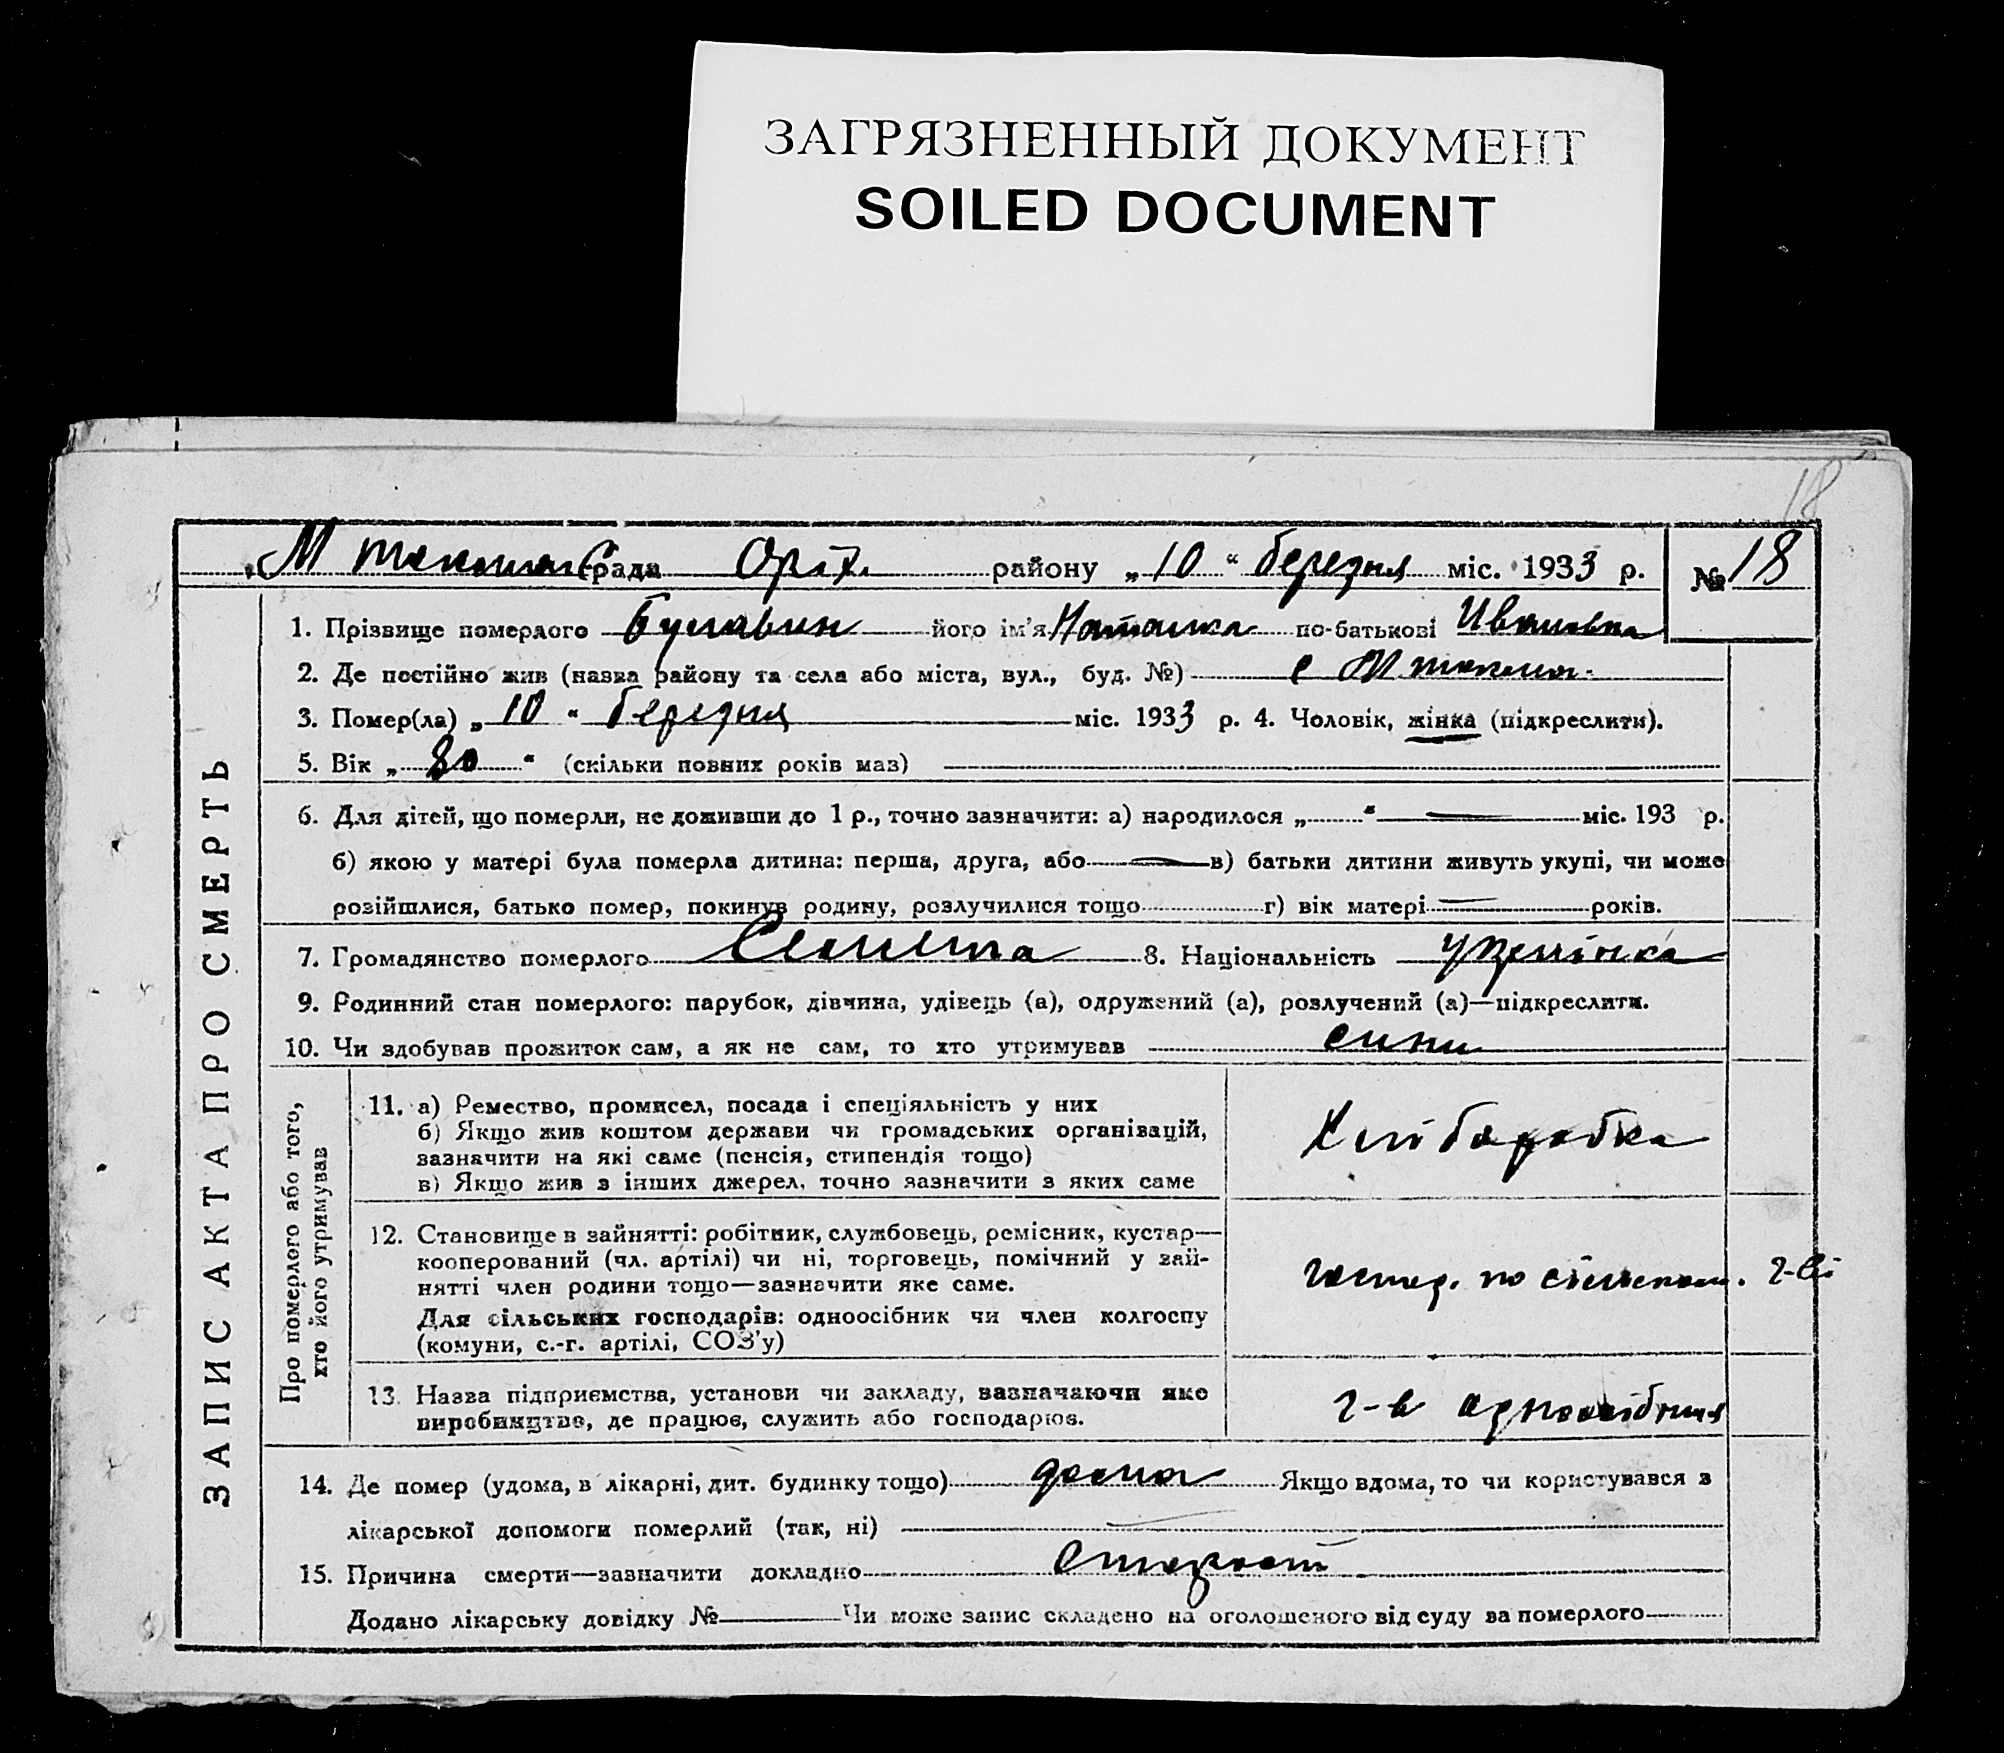 ЗАГРЯЗНЕННЫЙ ДОКУМЕНТ
SOILED DOCUMENT
18
М Токмач Срада Оріх. району „10“ березня міс. 1933 р. № 18
ЗАПИС АКТА ПРО СМЕРТЬ
1. Прізвище померлого його ім'я Наталка по-батькові Ивановна
2. Де постійно жив (назва району та села або міста, вул., буд. №) с М
3. Помер(ла) „10“ березня міс. 1933 р. 4. Чоловік, жінка (підкреслити).
5. Вік „80“ (скільки повних років мав)
6. Для дітей, що померли, не доживши до 1 р., точно зазначити: а) народилося „ “ — міс. 193 р.
б) якою у матері була померла дитина: перша, друга, або — в) батьки дитини живуть укупі, чи може
розійшлися, батько помер, покинув родину, розлучилися тощо г) вік матері — років.
7. Громадянство померлого 8. Національність
9. Родинний стан померлого: парубок, дівчина, удівець (а), одружений (а), розлучений (а)—підкреслити.
10. Чи здобував прожиток сам, а як не сам, то хто утримував сини
Про померлого або того,
хто його утримував
11. а) Ремество, промисел, посада і спеціяльність у них
б) Якщо жив коштом держави чи громадських організацій,
зазначити на які саме (пенсія, стипендія тощо)
в) Якщо жив з інших джерел, точно зазначити з яких саме
Хлібаробка
12. Становище в зайнятті: робітник, службовець, ремісник, кустар—
кооперований (чл. артілі) чи ні, торговець, помічний у зай-
нятті член родини тощо—зазначити яке саме.
Для сільських господарів: одноосібник чи член колгоспу
(комуни, с.-г. артілі, СОЗ'у)
господ. по сільськом. г-ві
13. Назва підприємства, установи чи закладу, зазначаючи яке
виробництво, де працює, служить або господарює.
г-в одноосібниця
14. Де помер (удома, в лікарні, дит. будинку тощо) дома Якщо вдома, то чи користувався з
лікарської допомоги померлий (так, ні) —
15. Причина смерти—зазначити докладно старость
Додано лікарську довідку № Чи може запис складено на оголошеного від суду за померлого